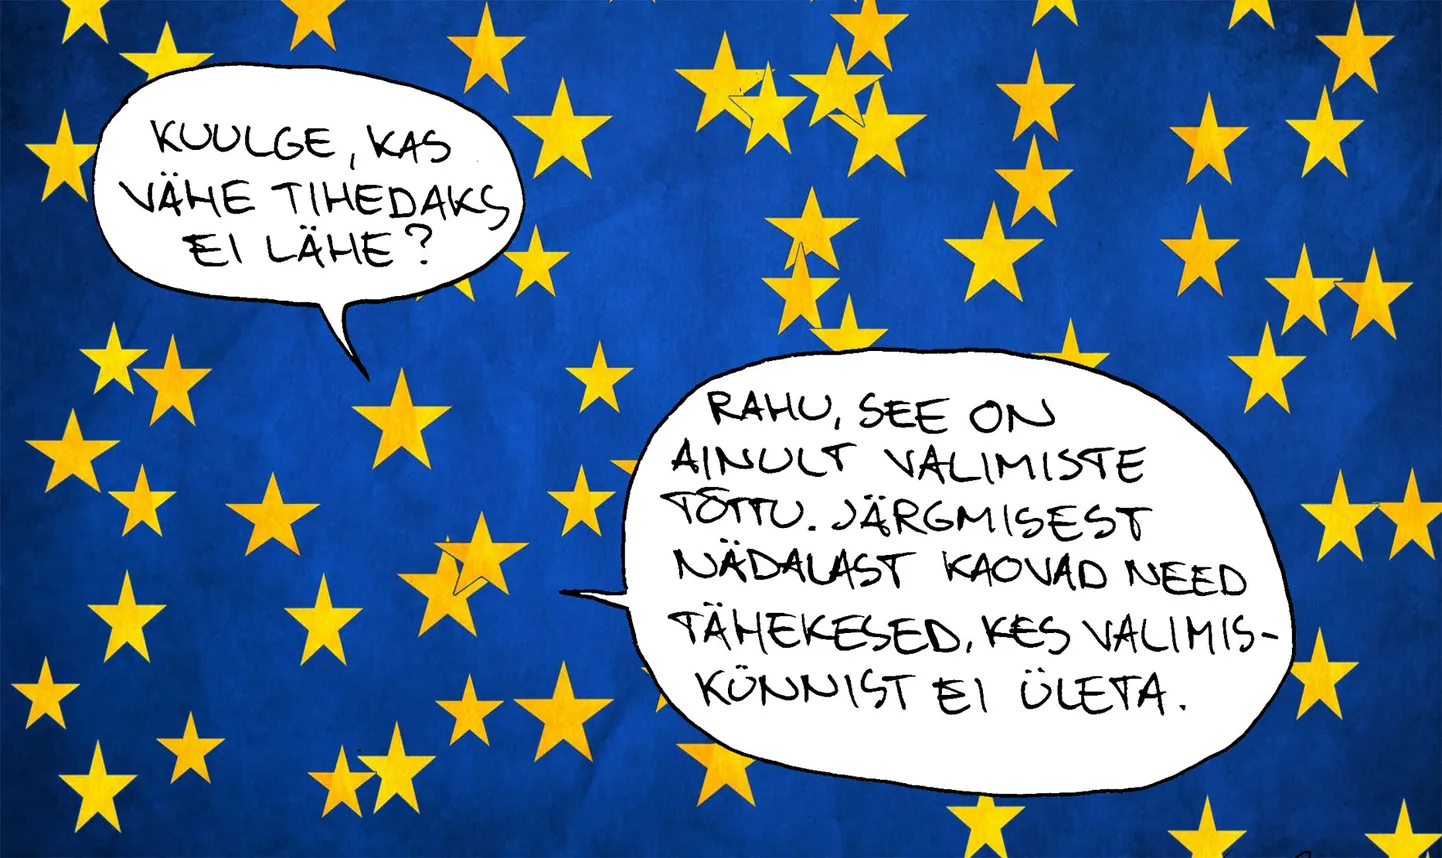 KUULGE, KAS
VÄHE TIHEDAKS
EI LÄHE?
RAHU, SEE ON
AINULT VALIMISTE
TÕTTU. JÄRGMISEST
NÄDALAST KAOVAD NEED
TÄHEKESED, KES VALIMIS-
KÜNNIST EI ÜLETA.